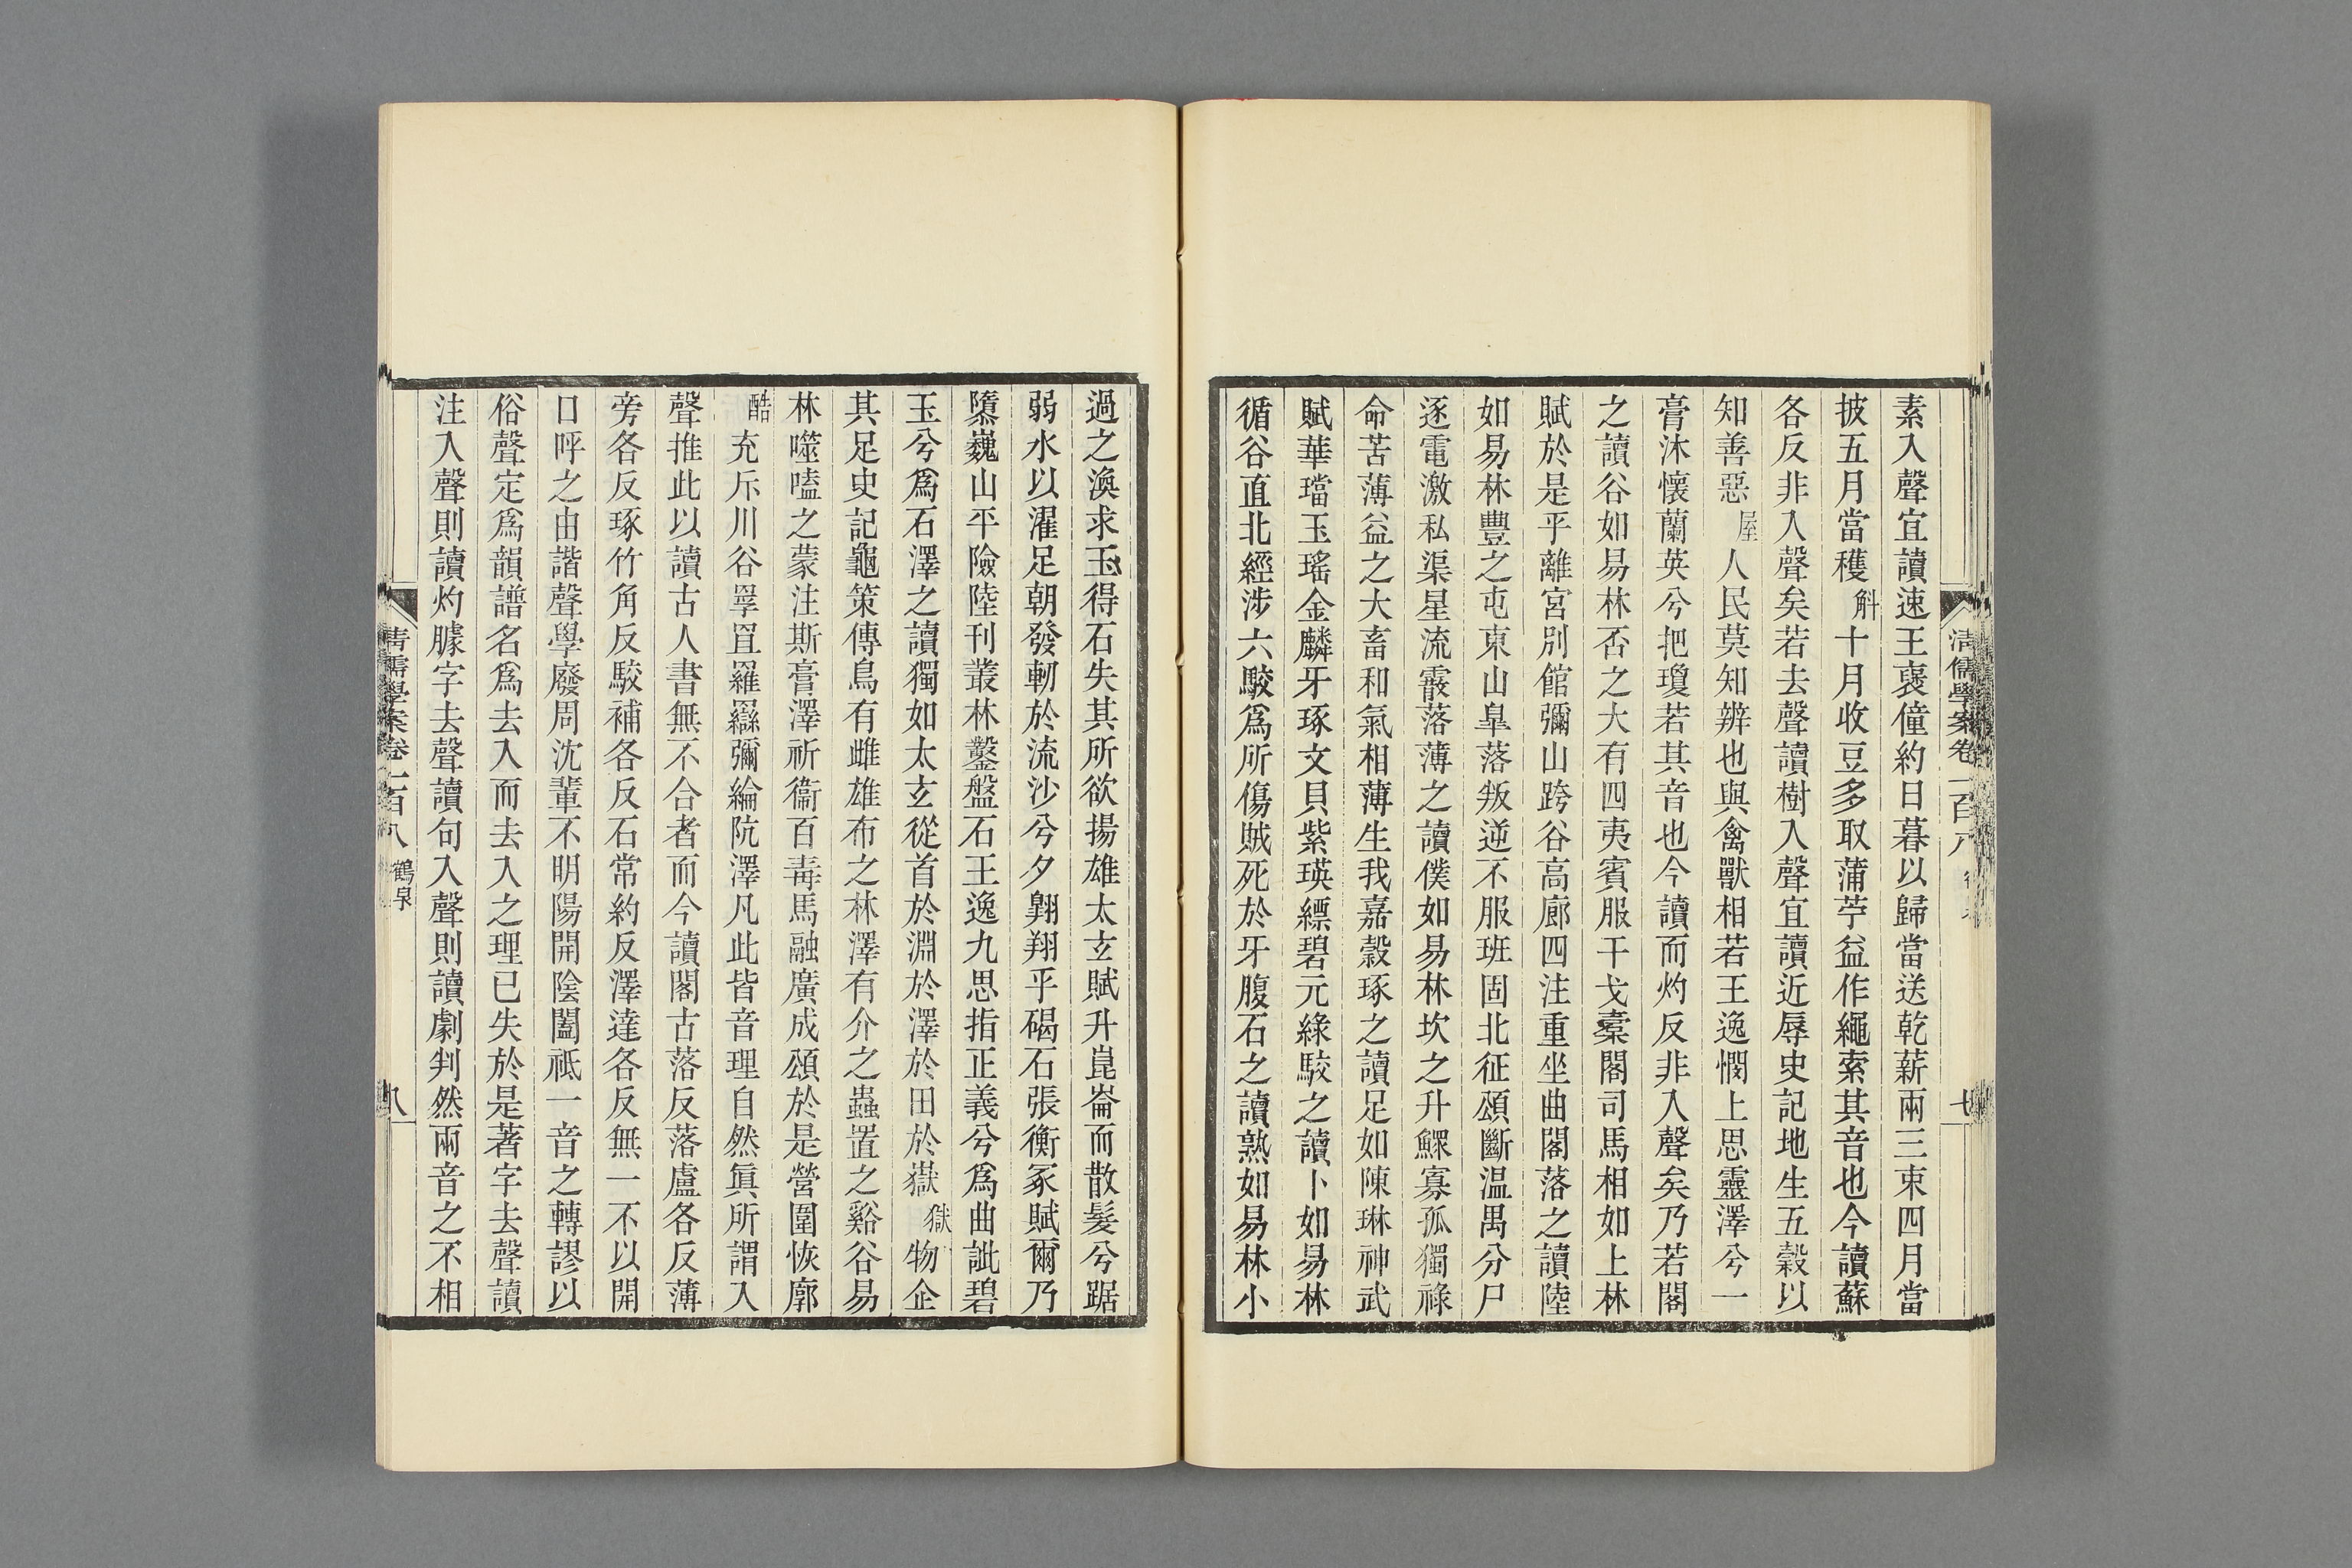 素入聲宜讀速王襃僮約日暮以歸當送乾薪兩三束四月當
披五月當穫斛十月收豆多取蒲苧益作繩索其音也今讀蘇
各反非入聲矣若去聲讀樹入聲宜讀近辱史記地生五穀以
知善惡屋人民莫知辨也與禽獸相若王逸憫上思靈澤兮一
膏沐懷蘭英兮把瓊若其音也今讀而灼反非入聲矣乃若閣
之讀谷如易林否之大有四夷賓服干戈櫜閣司馬相如上林
賦於是乎離宮別館彌山跨谷高廊四注重坐曲閣落之讀陸
如易林豐之屯東山皐落叛逆不服班固北征頌斷温禺分尸
逐電激私渠星流霰落薄之讀僕如易林坎之升鰥寡孤獨祿
命苦薄益之大畜和氣相薄生我嘉穀琢之讀足如陳琳神武
賦華璫玉瑤金麟牙琢文貝紫瑛縹碧元綠駮之讀卜如易林
循谷直北經涉六駮爲所傷賊死於牙腹石之讀熟如易林小
過之渙求玉得石失其所欲揚雄太玄賦升崑崙而散髮兮踞
弱水以濯足朝發軔於流沙兮夕翺翔乎碣石張衡冢賦爾乃
隳巍山平險陸刊叢林鑿盤石王逸九思指正義兮爲曲訿碧
玉兮爲石澤之讀獨如太玄從首於淵於澤於田於嶽獄物企
其足史記龜策傳鳥有雌雄布之林澤有介之蟲置之谿谷易
林噬嗑之蒙注斯膏澤祈衞百毒馬融廣成頌於是營圍恢廓
酷充斥川谷罦罝羅羉彌綸阬澤凡此皆音理自然眞所謂入
聲推此以讀古人書無不合者而今讀閣古落反落盧各反薄
旁各反琢竹角反駮補各反石常約反澤達各反無一不以開
口呼之由諧聲學廢周沈輩不明陽開陰闔祗一音之轉謬以
俗聲定爲韻譜名爲去入而去入之理已失於是著字去聲讀
注入聲則讀灼臄字去聲讀句入聲則讀劇判然兩音之不相
清儒學案卷一百八
七
清儒學案卷一百八 鶴泉
八